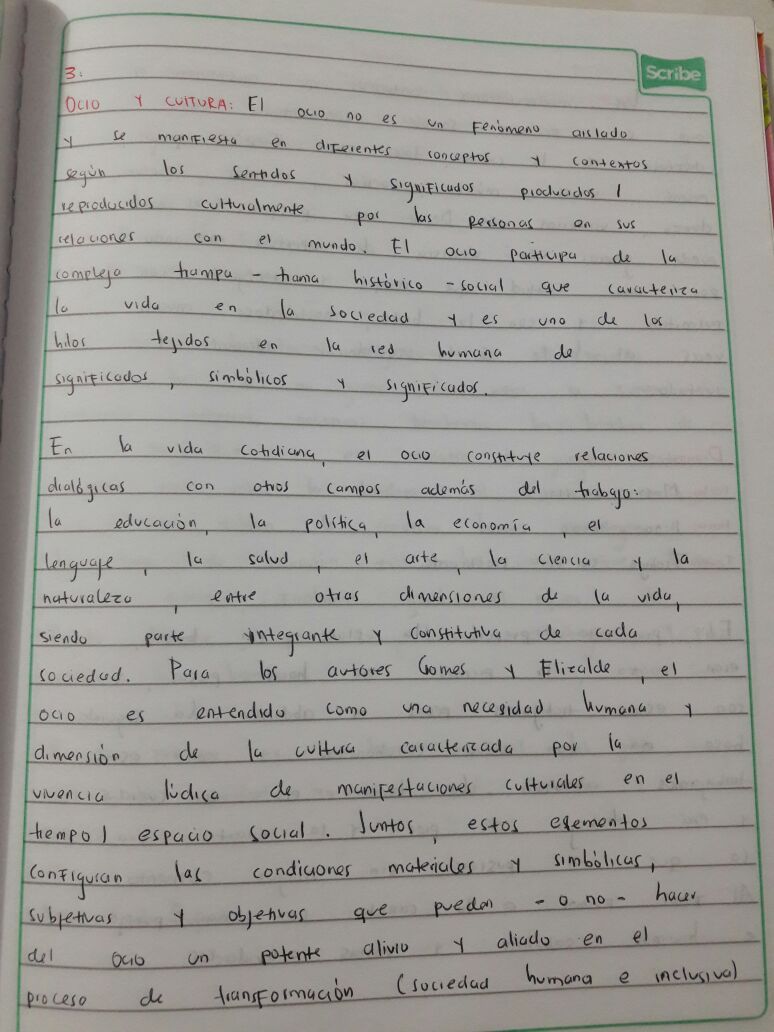 Scribe
3:
OCIO Y CULTURA: El ocio no es un fenómeno aislado
y se manifiesta en diferentes conceptos y contextos
según los sentidos y significados producidos /
reproducidos culturalmente por las personas en sus
relaciones con el mundo. El ocio participa de la
compleja trampa - trama histórico - social que caracteriza
la vida en la sociedad y es uno de los
hilos tejidos en la red humana de
significados, simbólicos y significados.
En la vida cotidiana, el ocio constituye relaciones
dialógicas con otros campos además del trabajo:
la educación, la política, la economía, el
lenguaje, la salud, el arte, la ciencia y la
naturaleza, entre otras dimensiones de la vida,
siendo parte integrante y constitutiva de cada
sociedad. Para los autores Gomes y Elizalde, el
ocio es entendido como una necesidad humana y
dimensión de la cultura caracterizada por la
vivencia lúdica de manifestaciones culturales en el
tiempo / espacio social. Juntos, estos elementos
configuran las condiciones materiales y simbólicas,
subjetivas y objetivas que pueden - o no - hacer
del ocio un potente alivio y aliado en el
proceso de transformación (sociedad humana e inclusiva)